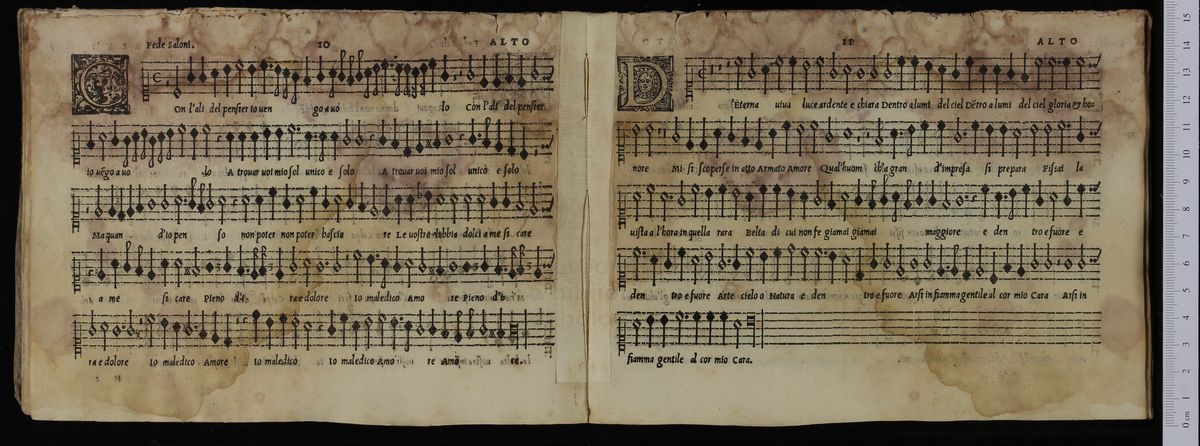 Fede Saloni. 10 ALTO
COn l'ali del pensier io ven go a uo lo Con l'ali del pensier
io uẽgo a uo lo A trouar uoi mio sol unico e solo A trouar uoi mio sol unico e solo
Ma quan d'io pen so non poter non poter bascia re Le uostre labbia dolci a me si care
a me si care Pieno d'i ra e dolore Io maledico Amo re Pieno d'i
ra e dolore Io maledico Amore Io maledico Io maledico Amo re Amo re.
11 ALTO
D'Eterna uiua luce ardente e chiara Dentro a lumi del ciel Dẽtro a lumi del ciel gloria & ho-
nore Mi si scoperse in atto Armato Amore Qual'huom ch'a gran d'impresa si prepara Fisai la
uista a l'hora in quella rara Belta di cui non fe giamai giamai maggiore e den tro e fuore e
den tro e fuore Arte cielo o Natura e den tro e fuore Arsi in fiamma gentile al cor mio Cara Arsi in
fiamma gentile al cor mio Cara.
0 cm 1 2 3 4 5 6 7 8 9 10 11 12 13 14 15